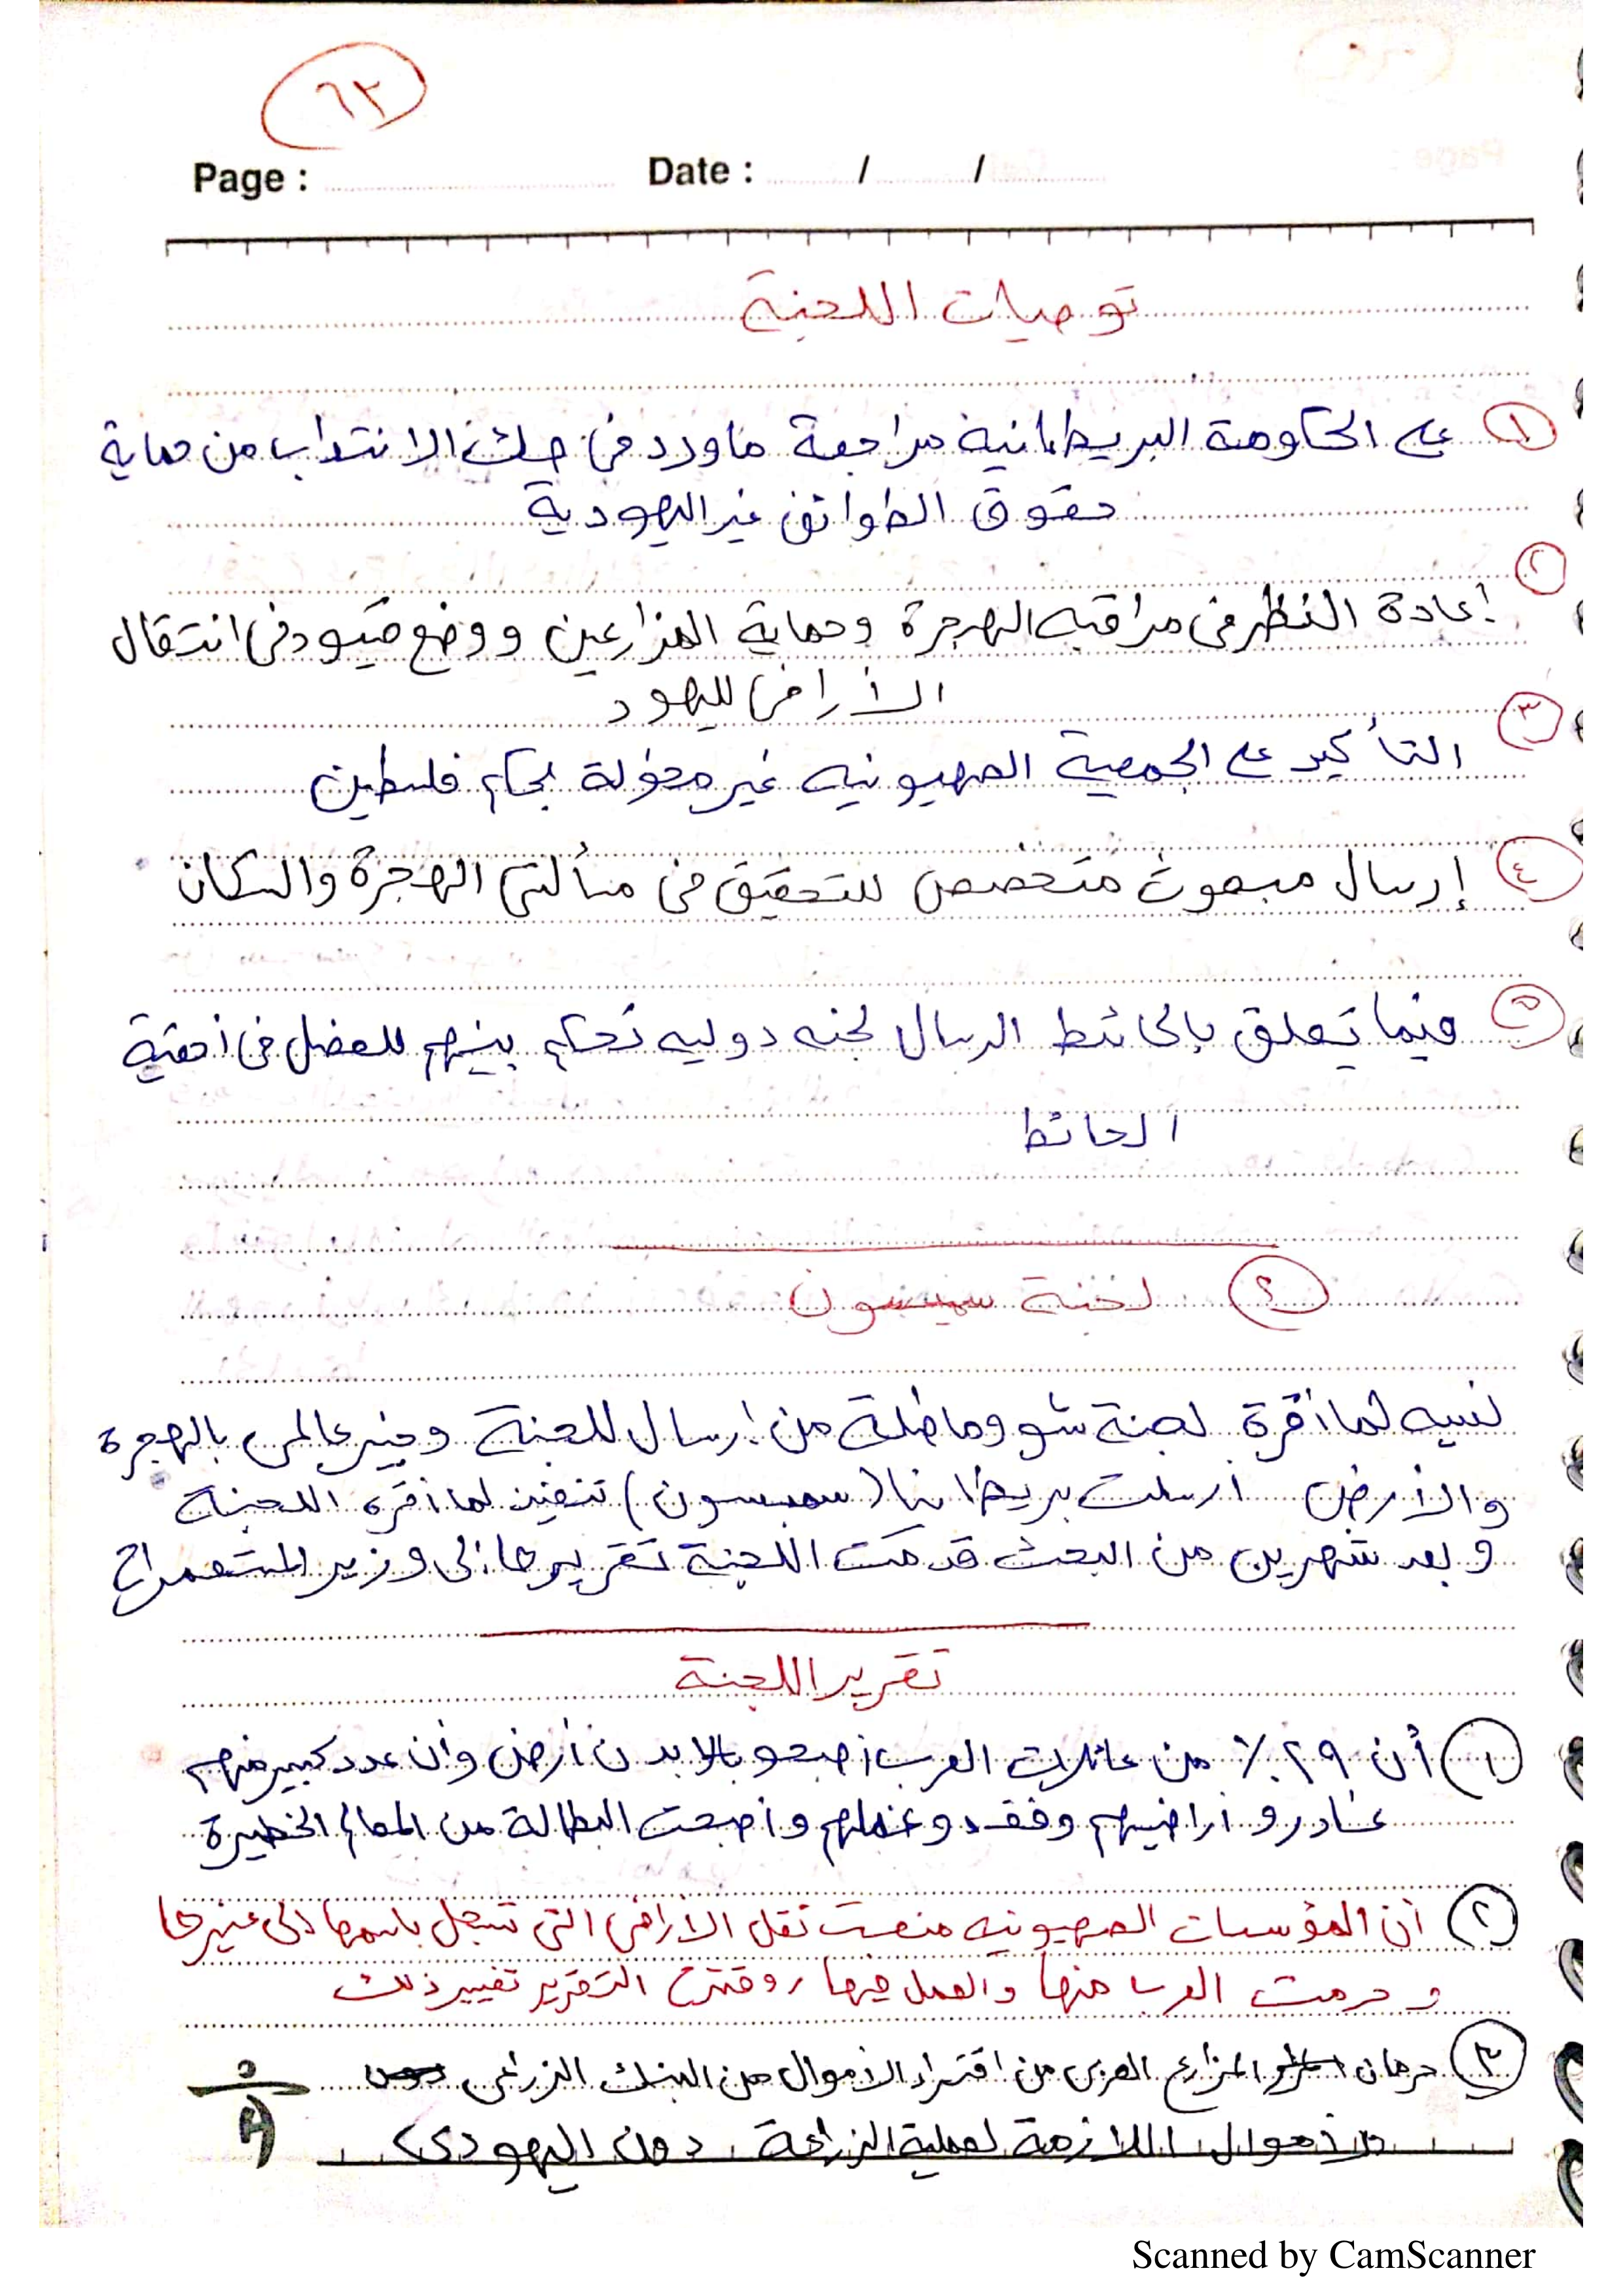 ٦٣
Page : Date : / /
توصيات اللجنة
١ على الحكومة البريطانية مراجعة ماورد فى صك الانتداب من حماية
حقوق الطوائف غير اليهودية
٢
إعادة النظر فى مراقبه الهجرة وحماية المزارعين ووضع قيود فى انتقال
الأراضى لليهود
٣ التأكيد على الجمعية الصهيونيه غير مخولة بحكم فلسطين
٤ إرسال مبعوث متخصص للتحقيق فى مسألتى الهجرة والسكان
٥ فيما تعلق بالحائط ارسال لجنه دوليه تحكم بينهم للفصل فى أحقية
الحائط
٢ لجنة سمبسون
نسبه لما أقرة لجنة شو وماطلة من إرسال للجنة وخبير عالمى بالهجرة
والأرض ارسلت بريطانيا (سمبسون) تنفيذ لما أقره اللجنة
وبعد شهرين من البحث قدمت اللجنة تقريرها إلى وزير المستعمرات
تقرير اللجنة
١ أن ٢٩٪ من عائلات العرب أصبحو بلا بدن أرض وأن عدد كبير منهم
غادرو أراضيهم وفقدو عملهم وأصبحت البطالة من المعالم الخطيرة
٢ أن المؤسسات الصهيونيه منعت نقل الاراضى التى تسجل باسمها إلى غيرها
وحرمت العرب منها والعمل فيها وقترح التقرير تغيير ذلك
٣ حرمان المزارع العربى من اقتراد الأموال من البنك الزراعى
الأموال اللازمة لعملية الزراعة دون اليهودى
Scanned by CamScanner